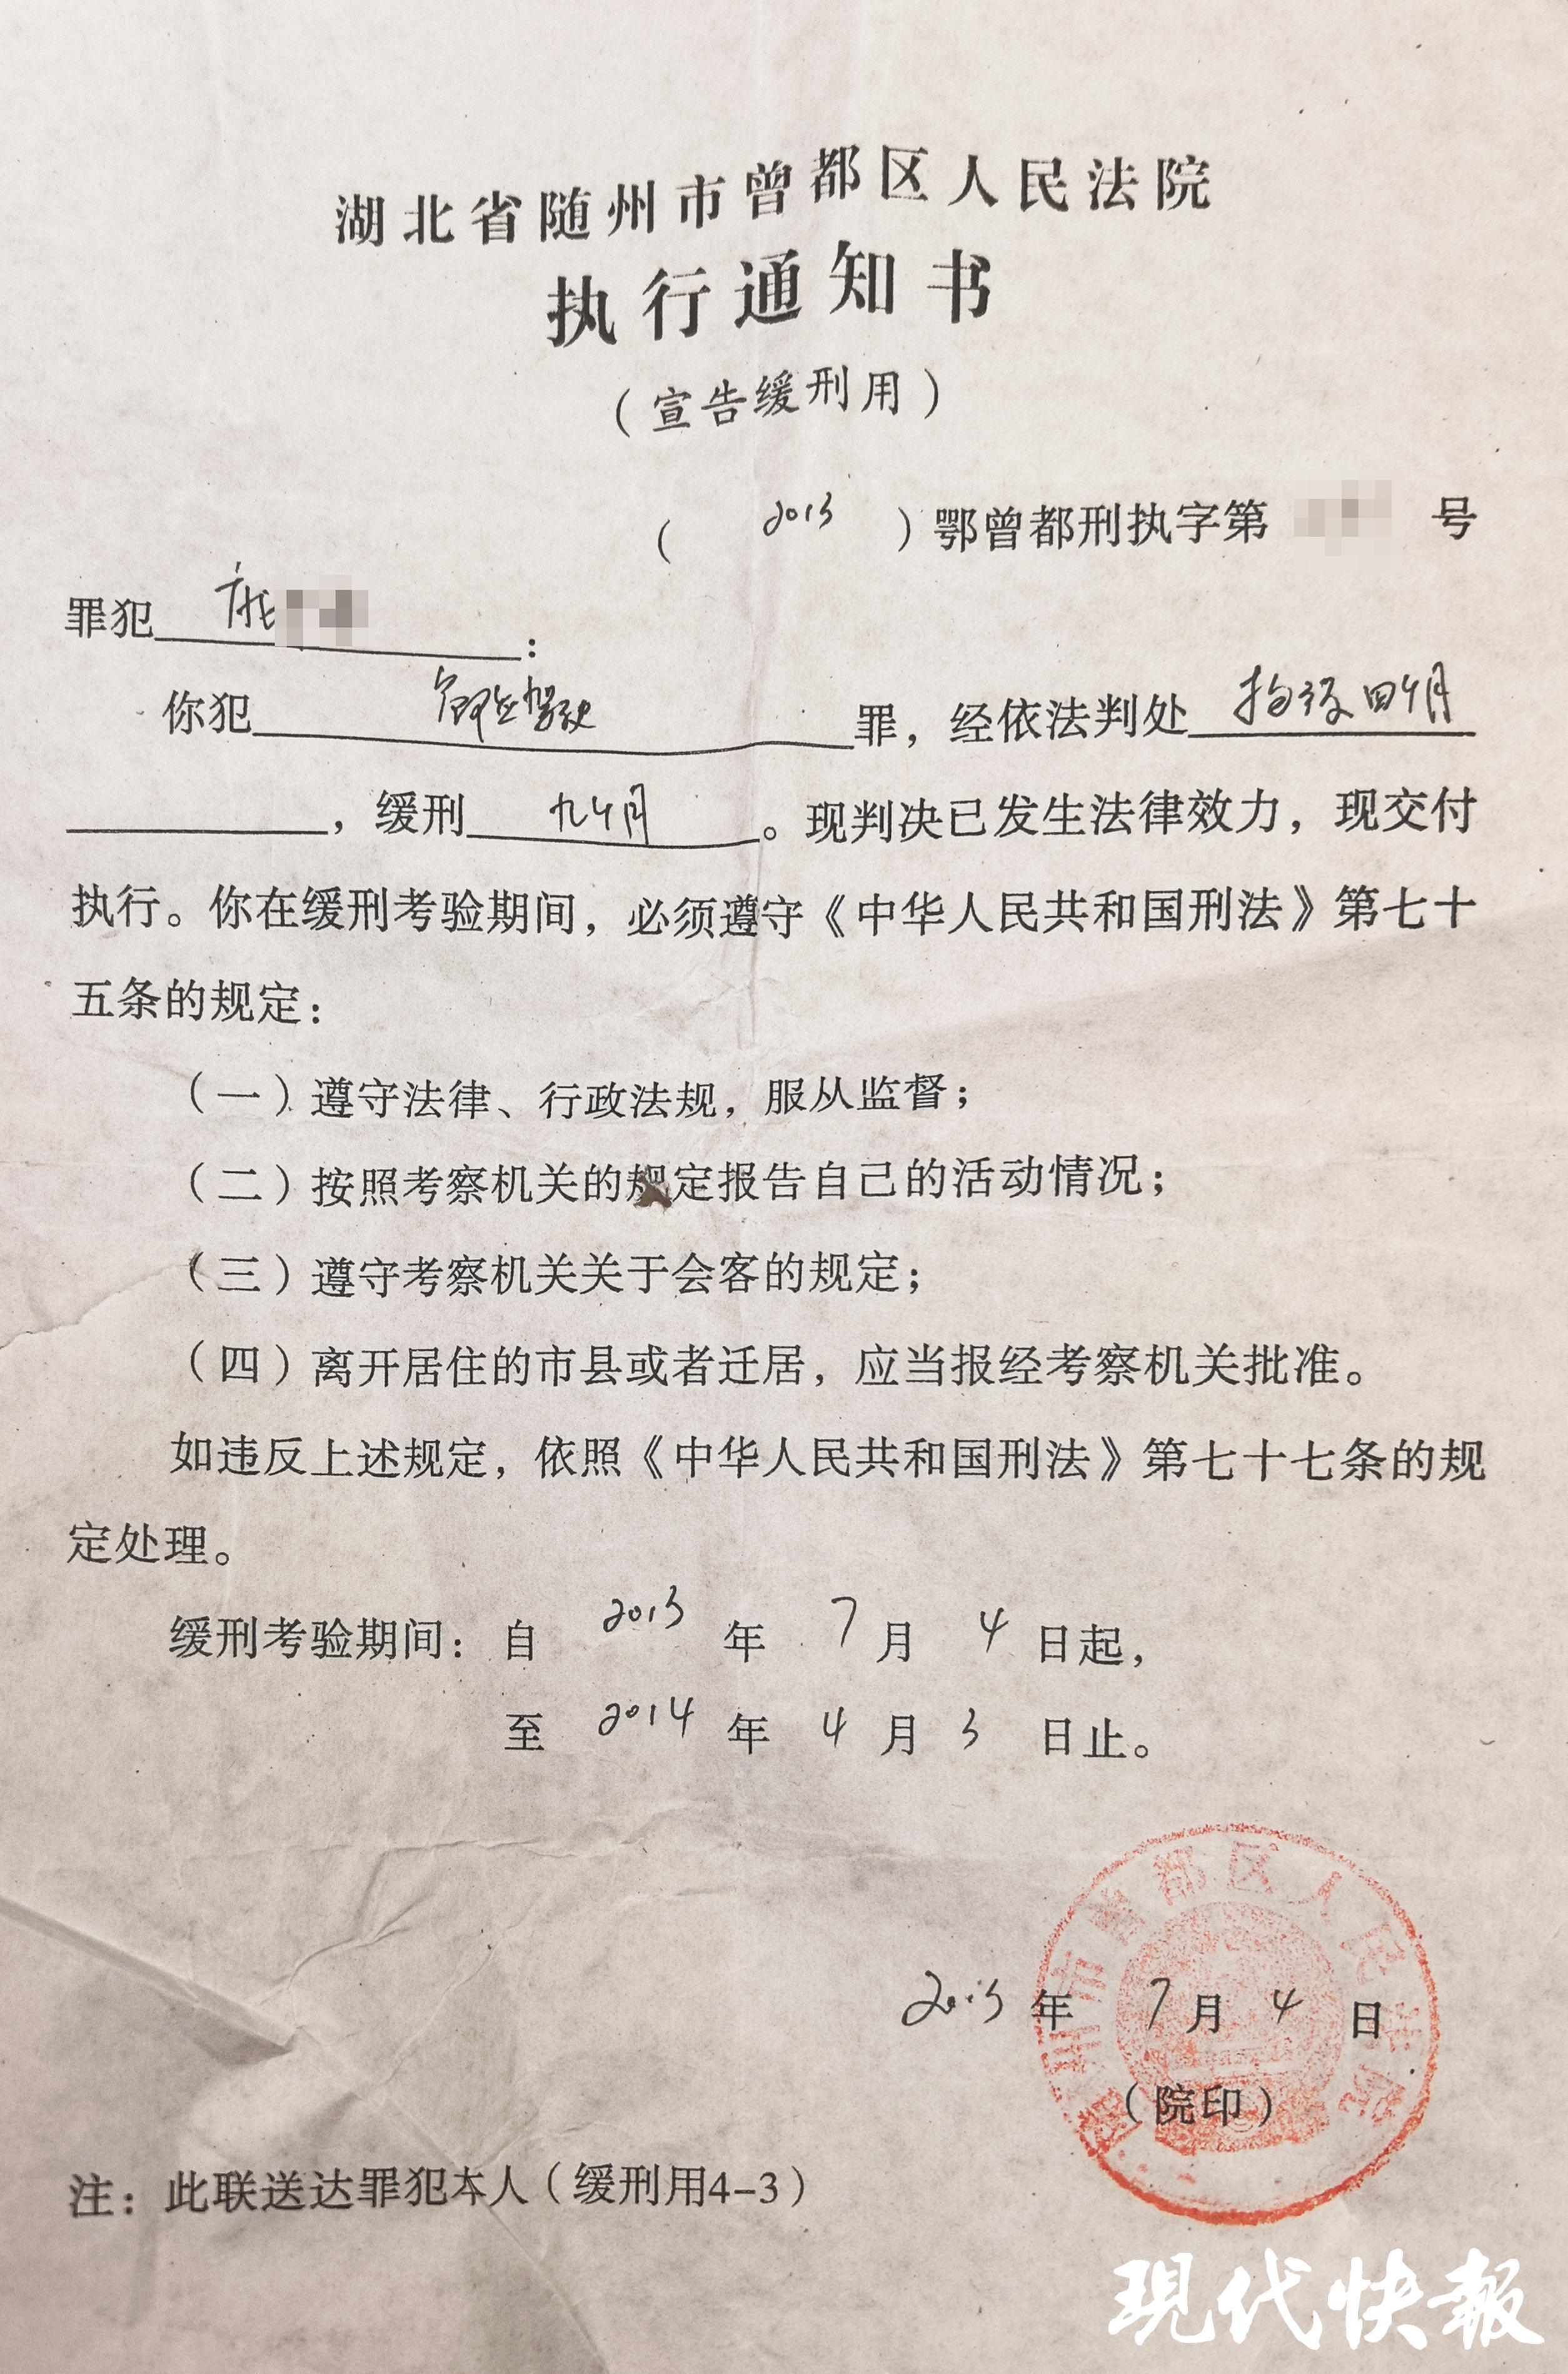 湖北省随州市曾都区人民法院
执行通知书
（宣告缓刑用）
（ 2013 ）鄂曾都刑执字第 号
罪犯 ：
你犯 危险驾驶 罪，经依法判处 拘役四个月
，缓刑 九个月 。现判决已发生法律效力，现交付
执行。你在缓刑考验期间，必须遵守《中华人民共和国刑法》第七十
五条的规定：
（一）遵守法律、行政法规，服从监督；
（二）按照考察机关的规定报告自己的活动情况；
（三）遵守考察机关关于会客的规定；
（四）离开居住的市县或者迁居，应当报经考察机关批准。
如违反上述规定，依照《中华人民共和国刑法》第七十七条的规
定处理。
缓刑考验期间：自 2013 年 7 月 4 日起，
至 2014 年 4 月 3 日止。
2013 年 7 月 4 日
（院印）
注：此联送达罪犯本人（缓刑用4-3）
現代快報